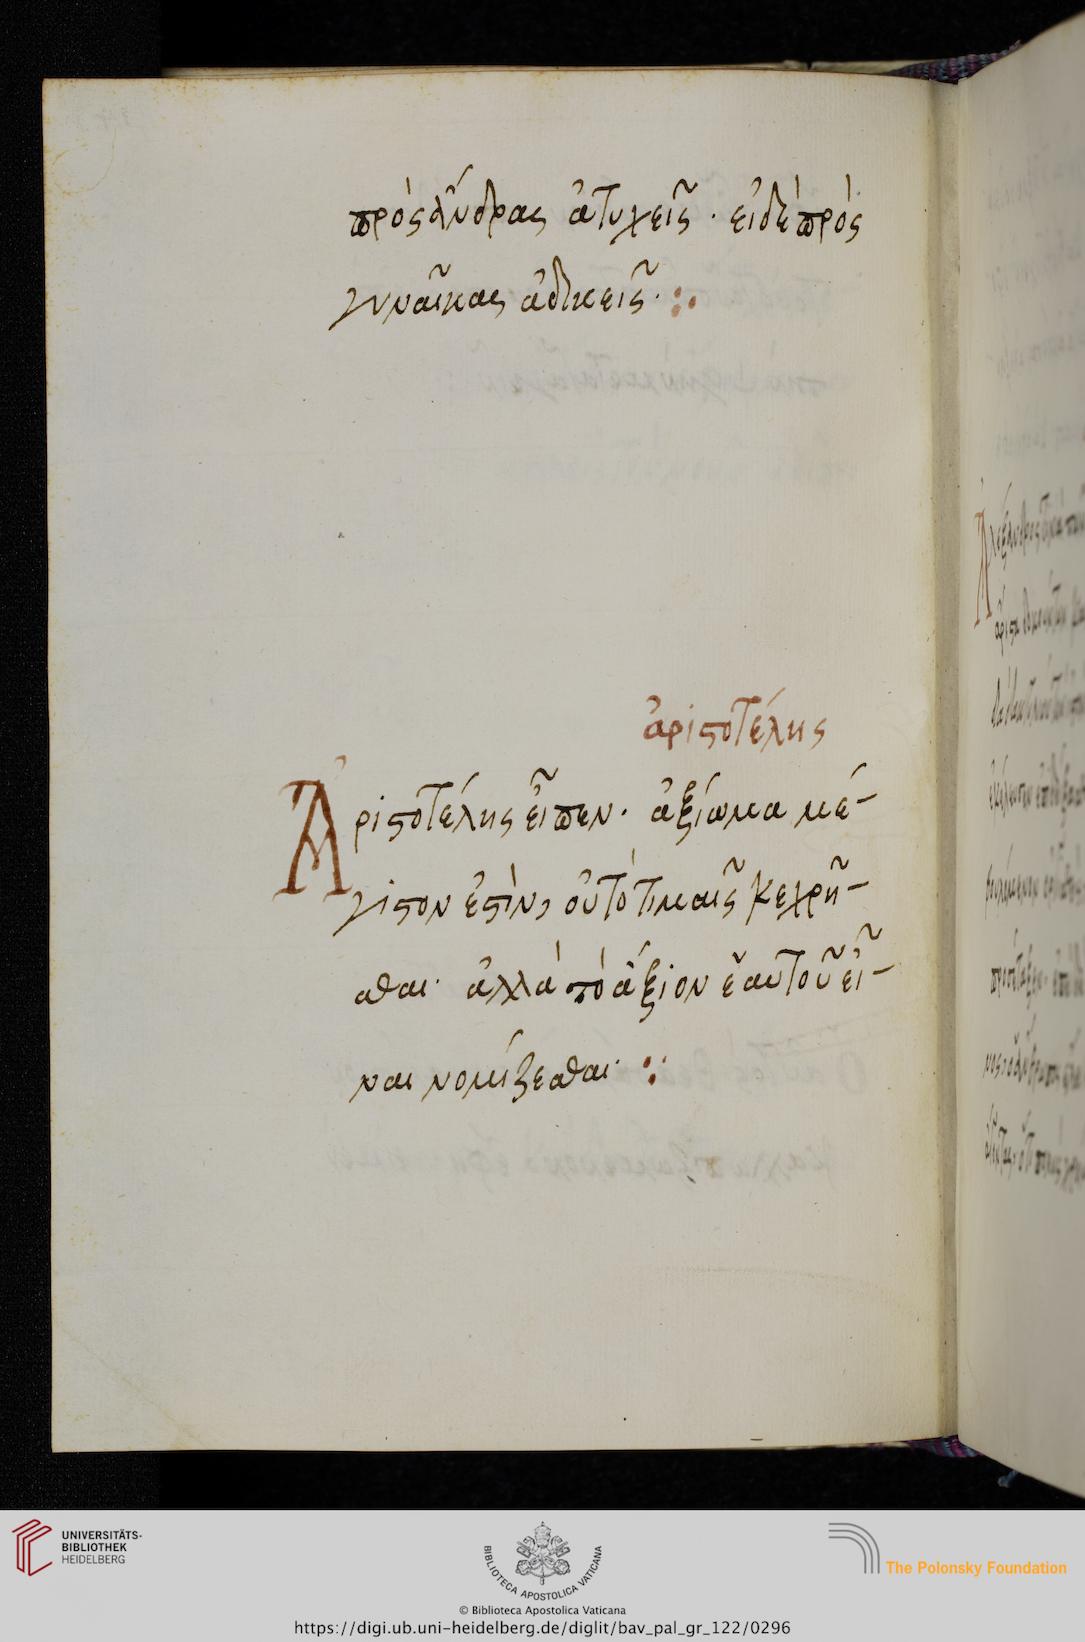 πρὸς ἄνδρας ἀτυχεῖς · εἰδὲ πρὸς
γυναῖκας ἀδικεῖς·
ἀριστοτέλης
Ἀριστοτέλης εἶπεν· ἀξίωμα μέ-
γιστον ἐστὶν, οὐ τὸ τιμαῖς κεχρῆ-
σθαι· ἀλλὰ τὸ ἄξιον ἑαυτοῦ εἶ-
ναι νομίζεσθαι·
UNIVERSITÄTS-
BIBLIOTHEK
HEIDELBERG
BIBLIOTECA APOSTOLICA VATICANA
The Polonsky Foundation
© Biblioteca Apostolica Vaticana
https://digi.ub.uni-heidelberg.de/diglit/bav_pal_gr_122/0296